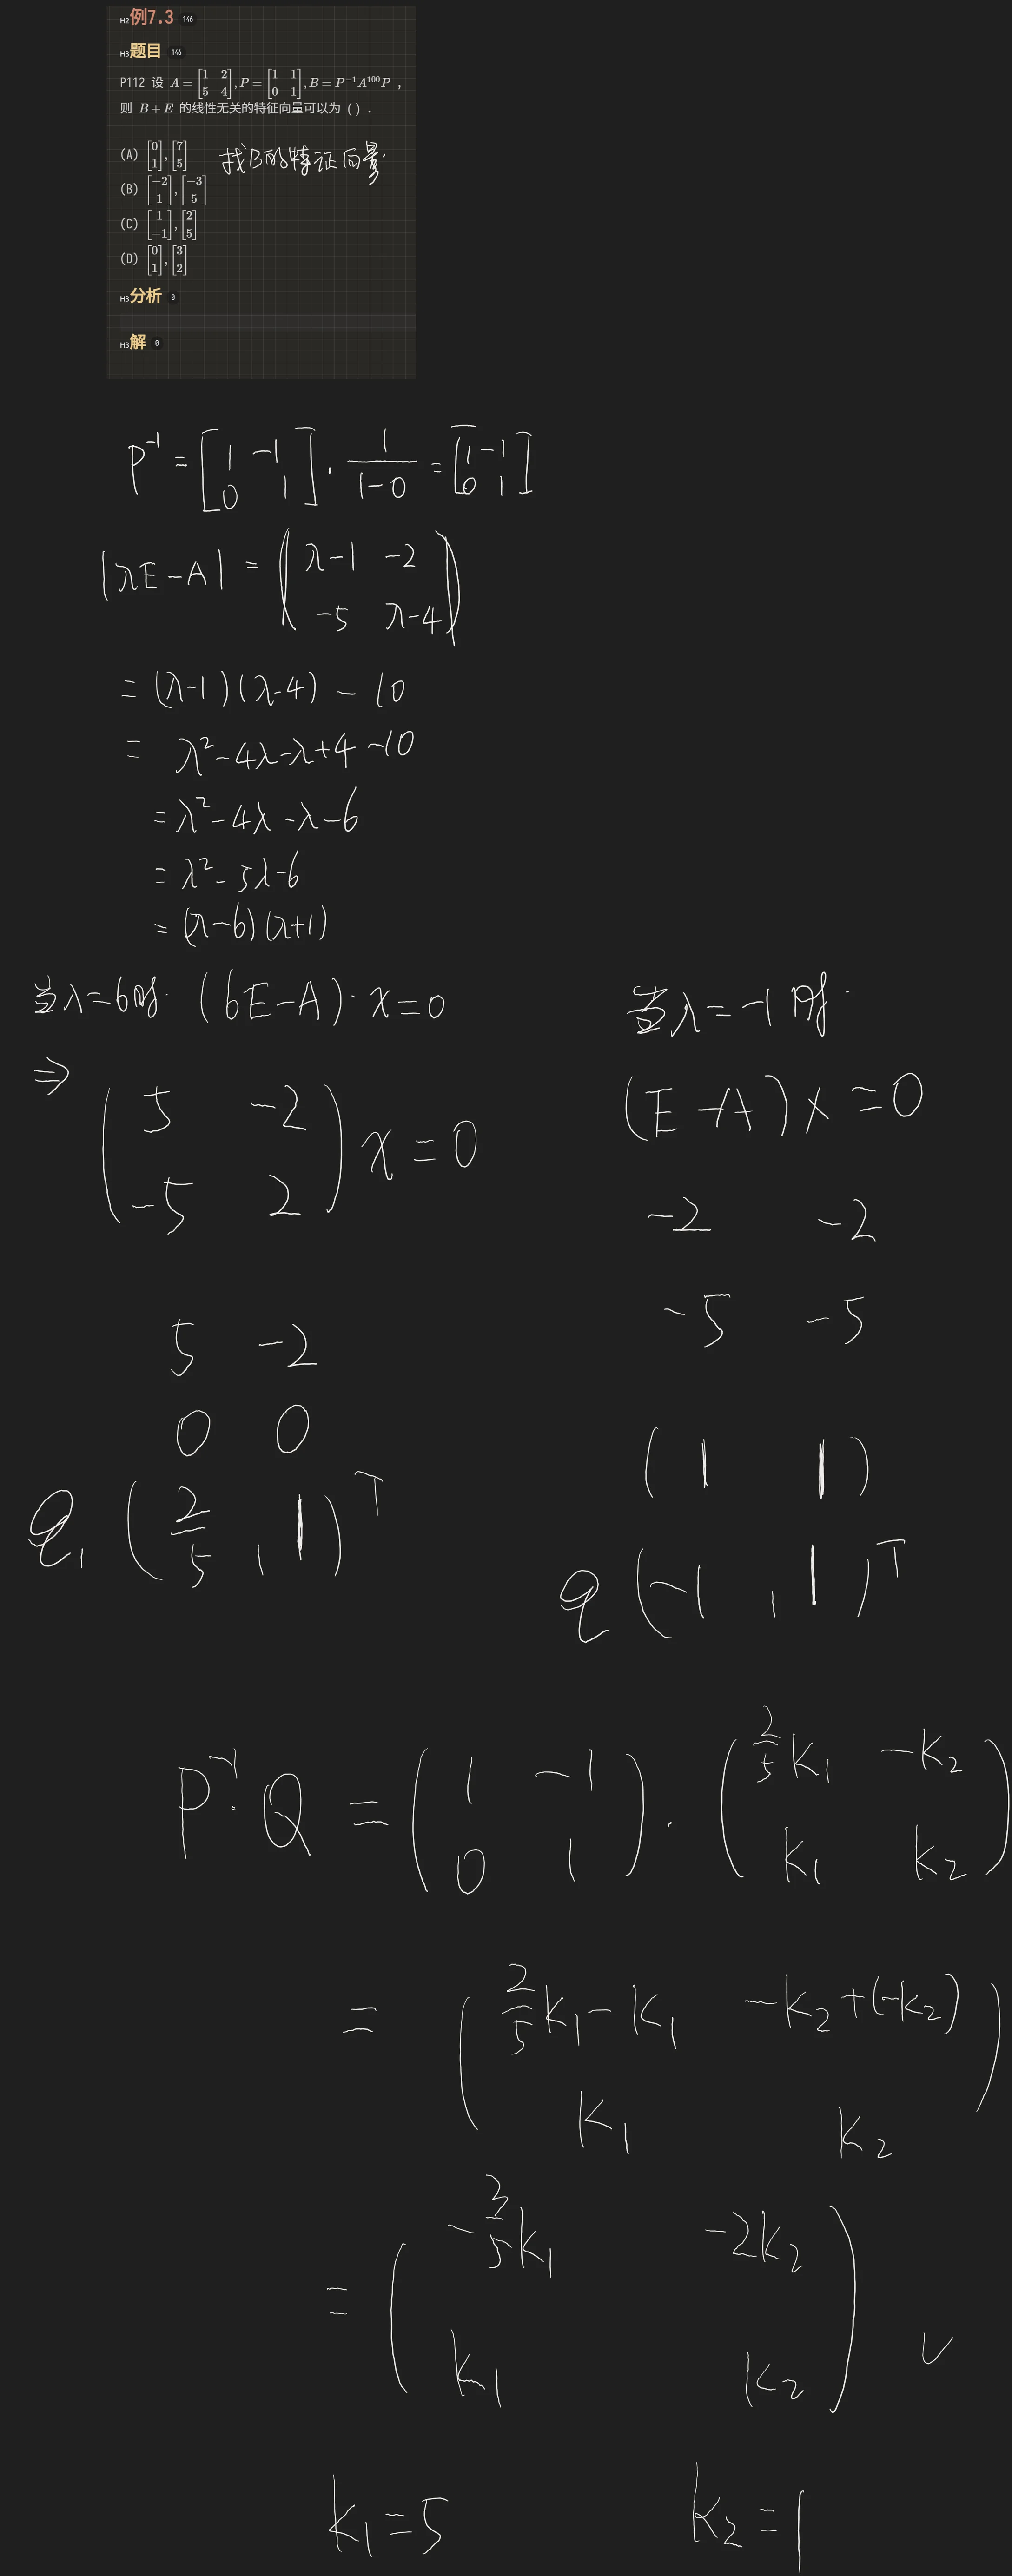 H2例7.3 146
H3题目 146
P112 设 A = [1 2; 5 4], P = [1 1; 0 1], B = P⁻¹A¹⁰⁰P ，
则 B + E 的线性无关的特征向量可以为 ( ) .
(A) [0; 1], [7; 5]
找B的特证向量.
(B) [−2; 1], [−3; 5]
(C) [1; −1], [2; 5]
(D) [0; 1], [3; 2]
H3分析 0
H3解 0
P⁻¹ = [1 -1; 0 1] · 1/(1-0) = [1 -1; 0 1]
|λE-A| = (λ-1 -2; -5 λ-4)
= (λ-1)(λ-4) - 10
= λ²-4λ-λ+4-10
= λ²-4λ-λ-6
= λ²-5λ-6
= (λ-6)(λ+1)
当λ=6时. (6E-A)·x=0
⇒ (5 -2; -5 2) x = 0
5 -2
0 0
q₁ (2/5, 1)ᵀ
当λ=-1时.
(E-A)x=0
-2 -2
-5 -5
(1 1)
q (-1, 1)ᵀ
P⁻¹·Q = (1 -1; 0 1) · (2/5k₁ -k₂; k₁ k₂)
= (2/5k₁-k₁ -k₂+(-k₂); k₁ k₂)
= (-3/5k₁ -2k₂; k₁ k₂) ✓
k₁=5 k₂=1